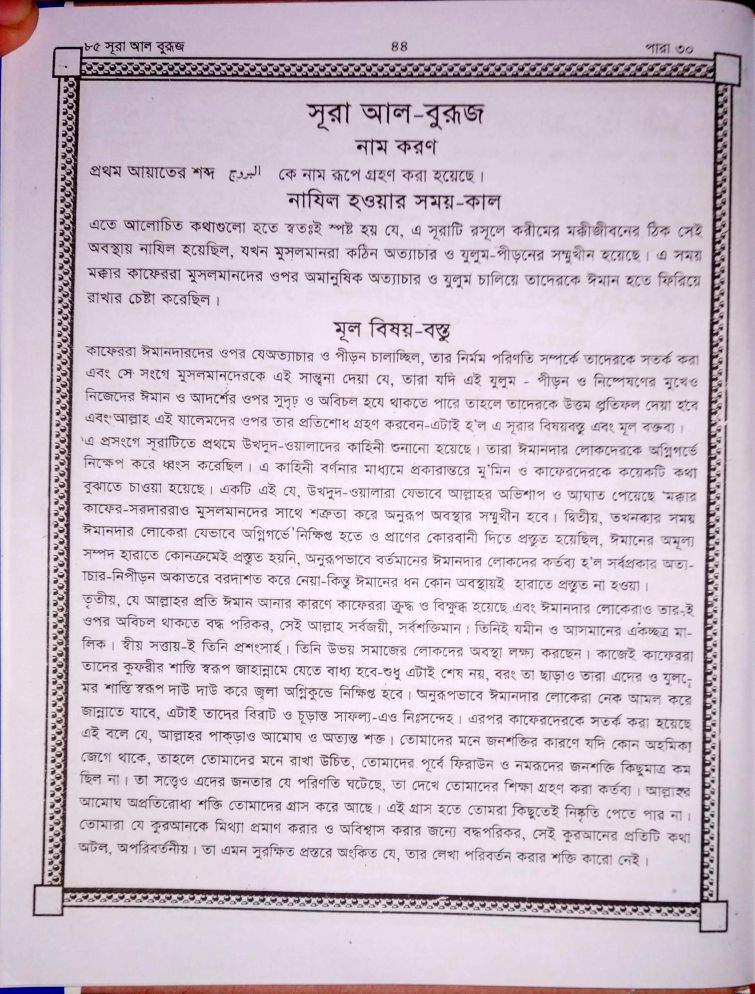 ৮৫ সূরা আল বুরূজ
৪৪
পারা ৩০
সূরা আল-বুরূজ
নাম করণ
প্রথম আয়াতের শব্দ البروج কে নাম রূপে গ্রহণ করা হয়েছে।
নাযিল হওয়ার সময়-কাল
এতে আলোচিত কথাগুলো হতে স্বতঃই স্পষ্ট হয় যে, এ সূরাটি রসূলে করীমের মক্কীজীবনের ঠিক সেই
অবস্থায় নাযিল হয়েছিল, যখন মুসলমানরা কঠিন অত্যাচার ও যুলুম-পীড়নের সম্মুখীন হয়েছে। এ সময়
মক্কার কাফেররা মুসলমানদের ওপর অমানুষিক অত্যাচার ও যুলুম চালিয়ে তাদেরকে ঈমান হতে ফিরিয়ে
রাখার চেষ্টা করেছিল।
মূল বিষয়-বস্তু
কাফেররা ঈমানদারদের ওপর যেঅত্যাচার ও পীড়ন চালাচ্ছিল, তার নির্মম পরিণতি সম্পর্কে তাদেরকে সতর্ক করা
এবং সে সংগে মুসলমানদেরকে এই সান্ত্বনা দেয়া যে, তারা যদি এই যুলুম - পীড়ন ও নিষ্পেষণের মুখেও
নিজেদের ঈমান ও আদর্শের ওপর সুদৃঢ় ও অবিচল হযে থাকতে পারে তাহলে তাদেরকে উত্তম প্রতিফল দেয়া হবে
এবং আল্লাহ এই যালেমদের ওপর তার প্রতিশোধ গ্রহণ করবেন-এটাই হ'ল এ সূরার বিষয়বস্তু এবং মূল বক্তব্য।
এ প্রসংগে সূরাটিতে প্রথমে উখদুদ-ওয়ালাদের কাহিনী শুনানো হয়েছে। তারা ঈমানদার লোকদেরকে অগ্নিগর্ভে
নিক্ষেপ করে ধ্বংস করেছিল। এ কাহিনী বর্ণনার মাধ্যমে প্রকারান্তরে মু'মিন ও কাফেরদেরকে কয়েকটি কথা
বুঝাতে চাওয়া হয়েছে। একটি এই যে, উখদুদ-ওয়ালারা যেভাবে আল্লাহর অভিশাপ ও আঘাত পেয়েছে মক্কার
কাফের-সরদাররাও মুসলমানদের সাথে শত্রুতা করে অনুরূপ অবস্থার সম্মুখীন হবে। দ্বিতীয়, তখনকার সময়
ঈমানদার লোকেরা যেভাবে অগ্নিগর্ভে নিক্ষিপ্ত হতে ও প্রাণের কোরবানী দিতে প্রস্তুত হয়েছিল, ঈমানের অমূল্য
সম্পদ হারাতে কোনক্রমেই প্রস্তুত হয়নি, অনুরূপভাবে বর্তমানের ঈমানদার লোকদের কর্তব্য হ'ল সর্বপ্রকার অত্যা-
চার-নিপীড়ন অকাতরে বরদাশত করে নেয়া-কিন্তু ঈমানের ধন কোন অবস্থায়ই হারাতে প্রস্তুত না হওয়া।
তৃতীয়, যে আল্লাহর প্রতি ঈমান আনার কারণে কাফেররা ক্রুদ্ধ ও বিক্ষুব্ধ হয়েছে এবং ঈমানদার লোকেরাও তার-ই
ওপর অবিচল থাকতে বদ্ধ পরিকর, সেই আল্লাহ সর্বজয়ী, সর্বশক্তিমান। তিনিই যমীন ও আসমানের একচ্ছত্র মা-
লিক। স্বীয় সত্তায়-ই তিনি প্রশংসার্হ। তিনি উভয় সমাজের লোকদের অবস্থা লক্ষ্য করছেন। কাজেই কাফেররা
তাদের কুফরীর শাস্তি স্বরূপ জাহান্নামে যেতে বাধ্য হবে-শুধু এটাই শেষ নয়, বরং তা ছাড়াও তারা এদের ও যুলু-
মের শাস্তি স্বরূপ দাউ দাউ করে জ্বলা অগ্নিকুন্ডে নিক্ষিপ্ত হবে। অনুরূপভাবে ঈমানদার লোকেরা নেক আমল করে
জান্নাতে যাবে, এটাই তাদের বিরাট ও চূড়ান্ত সাফল্য-এও নিঃসন্দেহ। এরপর কাফেরদেরকে সতর্ক করা হয়েছে
এই বলে যে, আল্লাহর পাকড়াও আমোঘ ও অত্যন্ত শক্ত। তোমাদের মনে জনশক্তির কারণে যদি কোন অহমিকা
জেগে থাকে, তাহলে তোমাদের মনে রাখা উচিত, তোমাদের পূর্বে ফিরাউন ও নমরূদের জনশক্তি কিছুমাত্র কম
ছিল না। তা সত্ত্বেও এদের জনতার যে পরিণতি ঘটেছে, তা দেখে তোমাদের শিক্ষা গ্রহণ করা কর্তব্য। আল্লাহর
আমোঘ অপ্রতিরোধ্য শক্তি তোমাদের গ্রাস করে আছে। এই গ্রাস হতে তোমরা কিছুতেই নিষ্কৃতি পেতে পার না।
তোমারা যে কুরআনকে মিথ্যা প্রমাণ করার ও অবিশ্বাস করার জন্যে বদ্ধপরিকর, সেই কুরআনের প্রতিটি কথা
অটল, অপরিবর্তনীয়। তা এমন সুরক্ষিত প্রস্তরে অংকিত যে, তার লেখা পরিবর্তন করার শক্তি কারো নেই।